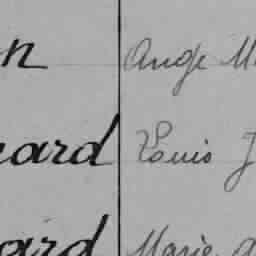 n Ange M
nard Louis J
ard Marie a